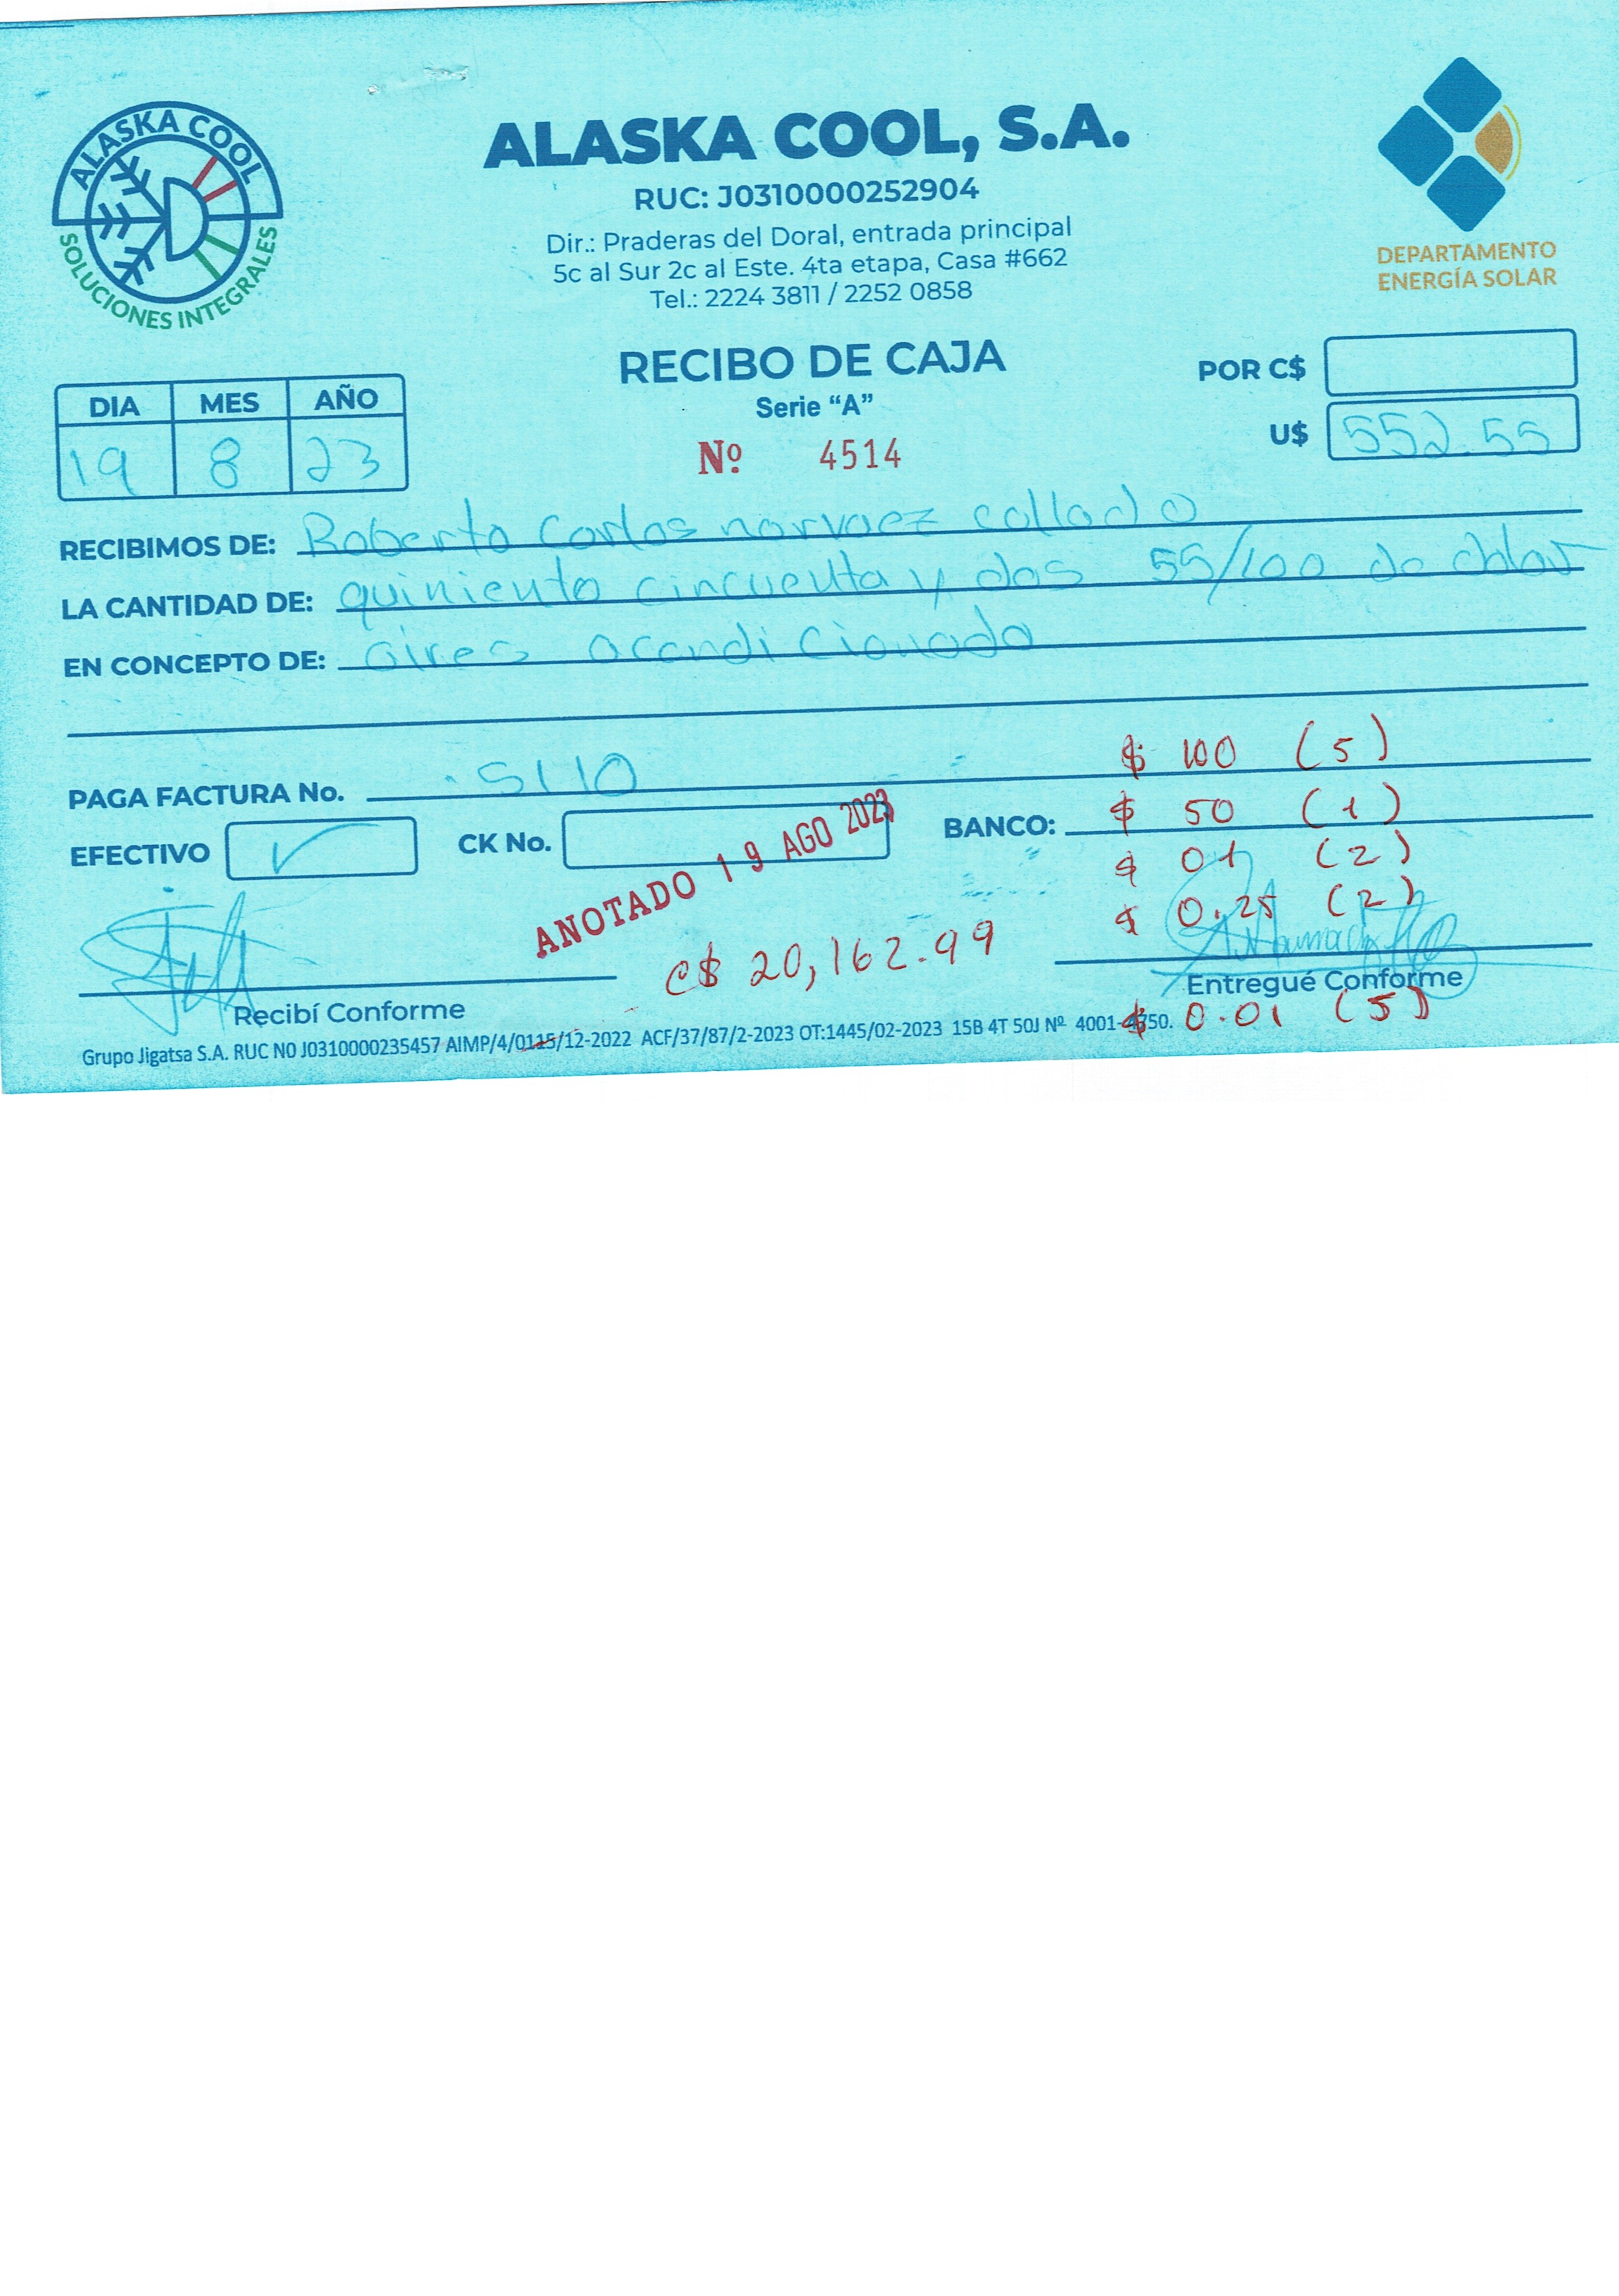 ALASKA COOL
SOLUCIONES INTEGRALES
ALASKA COOL, S.A.
RUC: J0310000252904
Dir.: Praderas del Doral, entrada principal
5c al Sur 2c al Este. 4ta etapa, Casa #662
Tel.: 2224 3811 / 2252 0858
DEPARTAMENTO
ENERGÍA SOLAR
RECIBO DE CAJA
Serie “A”
Nº 4514
POR C$
U$ 552.55
DIA MES AÑO
19 8 23
RECIBIMOS DE: Roberto Carlos narvaez collado
LA CANTIDAD DE: quiniento cincuenta y dos 55/100 de dolar
EN CONCEPTO DE: aires acondicionado
$ 100 (5)
PAGA FACTURA No. 5110
$ 50 (1)
EFECTIVO ✓ CK No. BANCO:
$ 01 (2)
ANOTADO 19 AGO 2023
$ 0.25 (2)
C$ 20,162.99
Recibí Conforme
Entregué Conforme
$ 0.01 (5)
Grupo Jigatsa S.A. RUC N0 J0310000235457 AIMP/4/0115/12-2022 ACF/37/87/2-2023 OT:1445/02-2023 15B 4T 50J Nº 4001-4750.